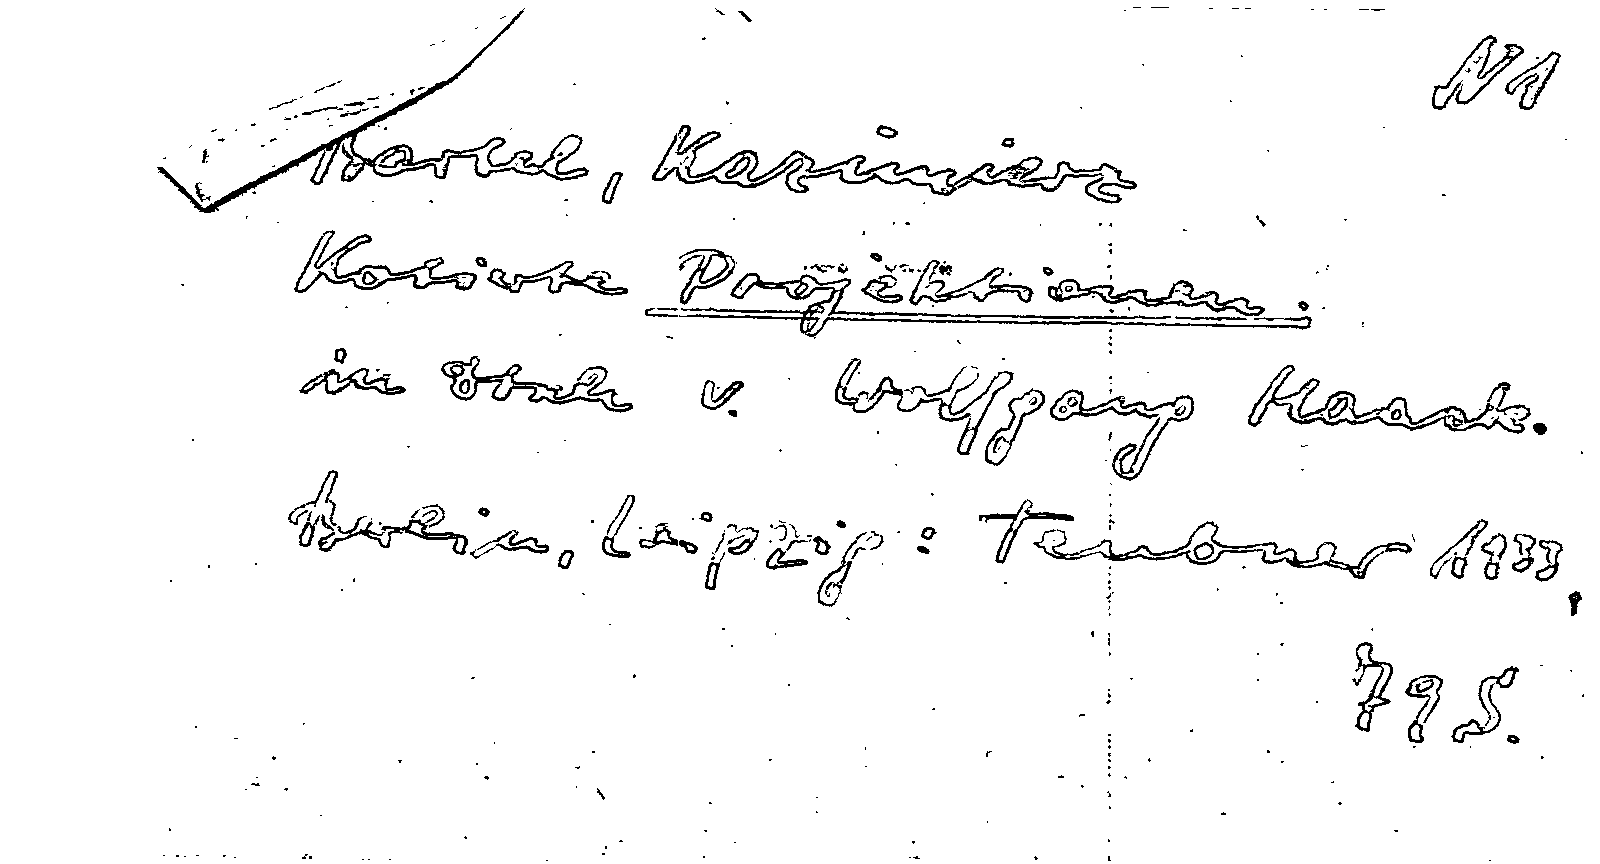 N 1
Bartel, Kazimierz
Kotirte Projektionen.
in v. Wolfgang Haack.
Berlin, Leipzig: Teubner 1933.
79 S.